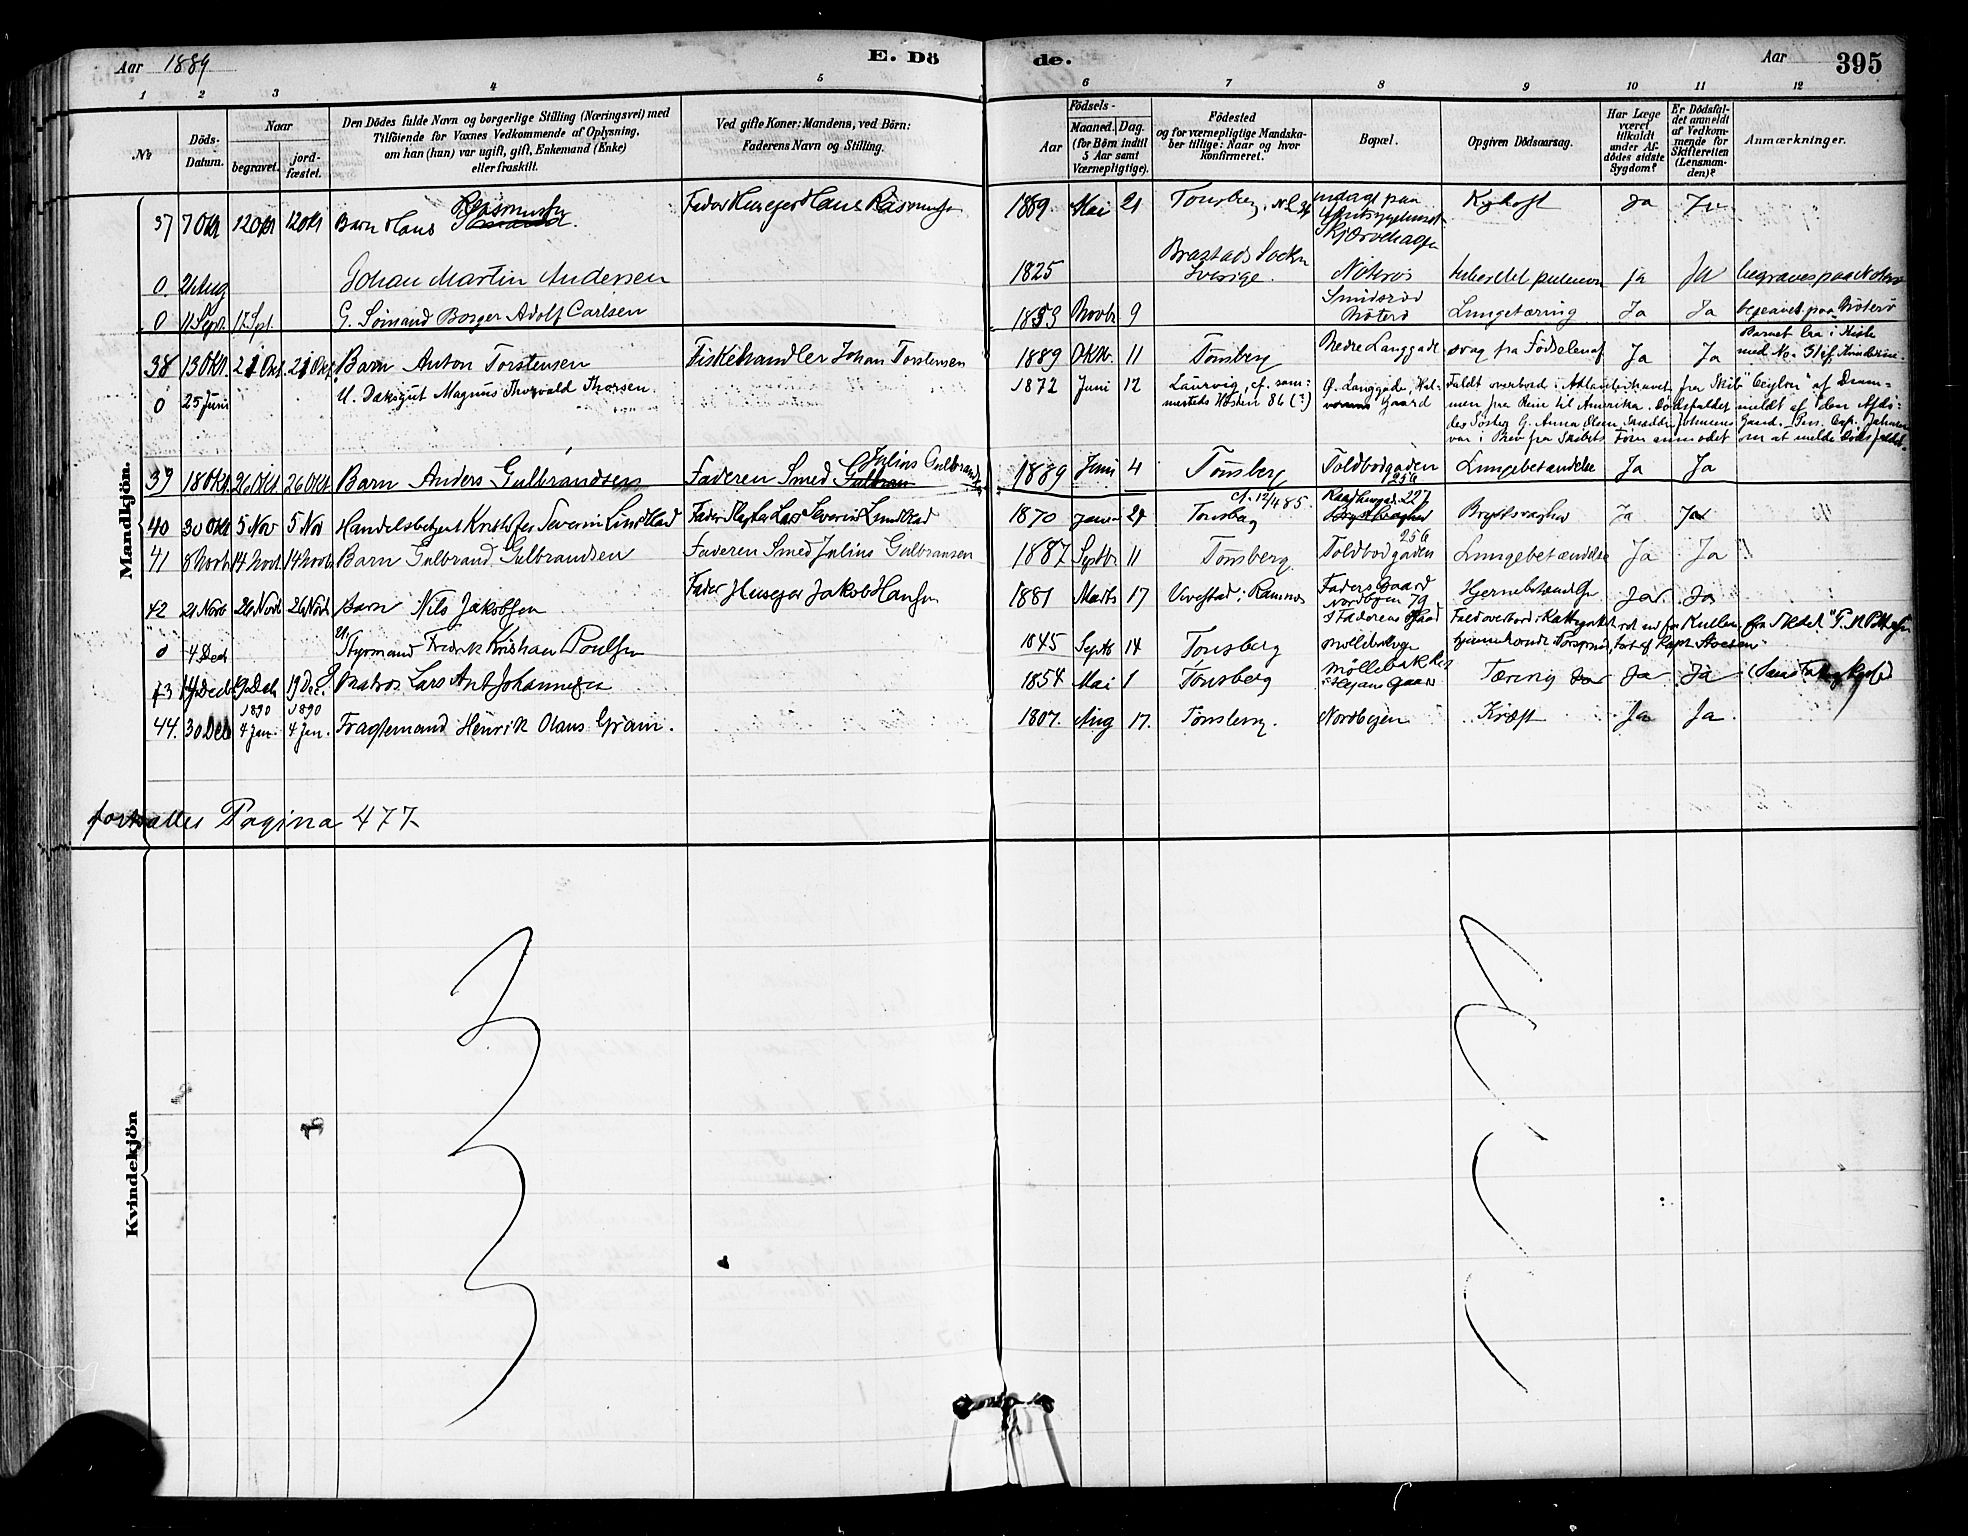 Aar 1889 E. Dö
de. Aar 395
1 2 3 4 5 6 7 8 9 10 11 12
№ Döds-Datum. Naar begravet. jord-fæstet. Den Dödes fulde Navn og borgerlige Stilling (Næringsvei) med Tilföiende for Voxnes Vedkommende af Oplysning, om han (hun) var ugift, gift, Enkemand (Enke) eller fraskilt. Ved gifte Koner: Mandens, ved Börn: Faderens Navn og Stilling.
Födsels- Aar Maaned. Dag. (for Börn indtil 5 Aar samt Værnepligtige). Födested og for værnepligtige Mandskaber tillige: Naar og hvor konfirmeret. Bopæl. Opgiven Dödsaarsag. Har Læge været tilkaldt under Afdödes sidste Sygdom? Er Dödsfaldet anmeldt af Vedkommende for Skifteretten (Lensmanden)? Anmærkninger.
Mandkjön.
37 7 Okt 12 Okt 12 Okt Barn Hans Rasmussen Fader Huseier Hans Rasmussen 1889 Mai 21 Tønsberg, indlagt paa Skjærvehagen Ja Ja
0. 21 Aug Johan Martin Andersen 1825 Brastads Sockn Sverige. Nøterø Ja Ja begraves paa Nøterø
0 11 Sept. 17 Sept. G. Sømand Borger Adolf Carlsen 1853 Novbr 9 Smidsrød Nøterø Lungetæring Ja Ja begravet paa Nøterø
38 13 Okt. 21 Okt 21 Okt Barn Anton Torstensen Fiskehandler Johan Torstensen 1889 Oktb. 11 Tønsberg Nedre Langgade svag fra Fødselen af Ja Ja Barnet laa i Kiste med No. 31 af Kvindekjøn
0 25 Juni U. Dæksgut Magnus Thorvald Thorsen. 1872 Juni 12 Laurvig, cf. sammesteds Høsten 86 (?) Ø. Langgade, Gaard Faldt overbord i Atlanterhavet fra Skib "Ceylon" af Drammen paa Reise til Amerika. Dødsfaldet meldt af den Afdødes Søster G. Anna Olsen var i Brev fra Skibets Fører anmodet om at melde Dødsfaldet
39 18 Okt. 26 Okt 26 Okt Barn Anders Gulbrandsen Faderen Smed Julius Gulbrandsen 1889 Juni 4 Tønsberg Toldbodgaden 256 Lungebetændelse Ja Ja
40 30 Okt 5 Nov 5 Nov Handelsbetjent Kristoffer Severin Lindstad Lars Severin Lindstad 1870 Januar Tønsberg cf. 12/4 85. 227 Brystsvaghed Ja Ja
41 8 Novb 14 Novb 14 Novb Barn Gulbrand Gulbrandsen Faderen Smed Julius Gulbransen 1887 Septbr 11 Tønsberg. Toldbodgaden 256 Lungebetændelse Ja Ja
42 21 Novb 26 Novb 26 Novb Barn Nils Jakobsen Fader Huseier Jakob Hansen 1881 Marts 17 Vivestad i Ramnes Faders Gaard Nordbyen 79 Hjernebetændelse Ja Ja
0 4 Dec U. Styrmand Fredrik Kristian Poulsen 1845 Septb 14 Tønsberg Faderens Gaard Møllebakken Fald overbord i Kattegat ret ud for Kullen fra Skibet
43 14 Decb 19 Decb 19 Dec. Matros Lars Ant Johannesen 1854 Mai 1 Tønsberg Møllebakken i Gaard Tæring Ja Ja
44. 30 Dec 1890 4 Jan. 1890 4 Jan. Fragtemand Henrik Olaus Gram. 1807. Aug 17. Tønsberg. Nordbyen Kræft Ja Ja.
fortsættes Pagina 477.
Kvindekjön